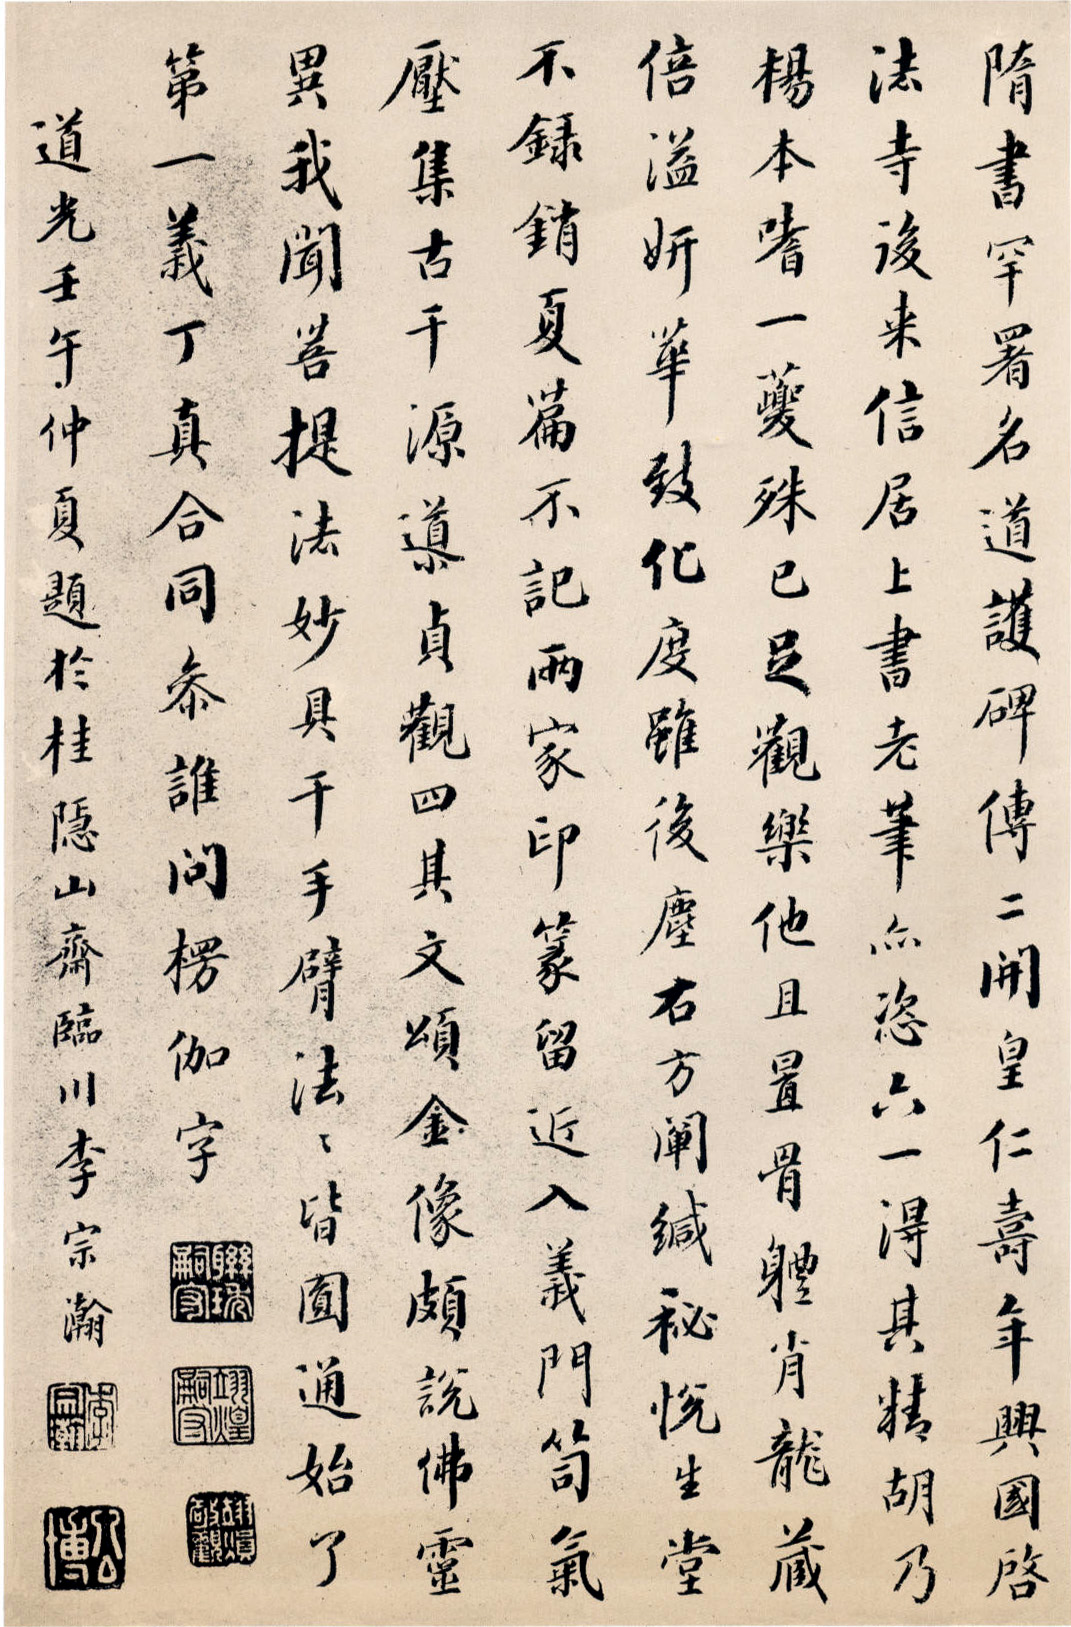 隋書罕署名道護碑傳二開皇仁壽年興國啓
法寺後来信居上書老筆亦恣六一得其精胡乃
楊本嗜一夔殊已足觀樂他且置骨體肖龍藏
倍溢妍華致化度雖後塵右方闡緘秘悦生堂
不録銷夏篇不記兩家印篆留近入義門笥氣
壓集古千源導貞觀四其文頌金像頗說佛靈
異我聞菩提法妙具千手臂法〻皆圓通始了
第一義丁真合同叅誰問楞伽字
道光壬午仲夏題於桂隱山齋臨川李宗瀚
李宗瀚
公博